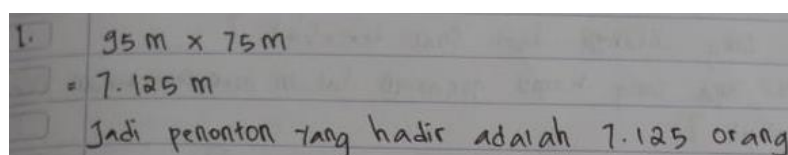 1. 95 m x 75 m
= 7.125 m
Jadi penonton yang hadir adalah 7.125 orang